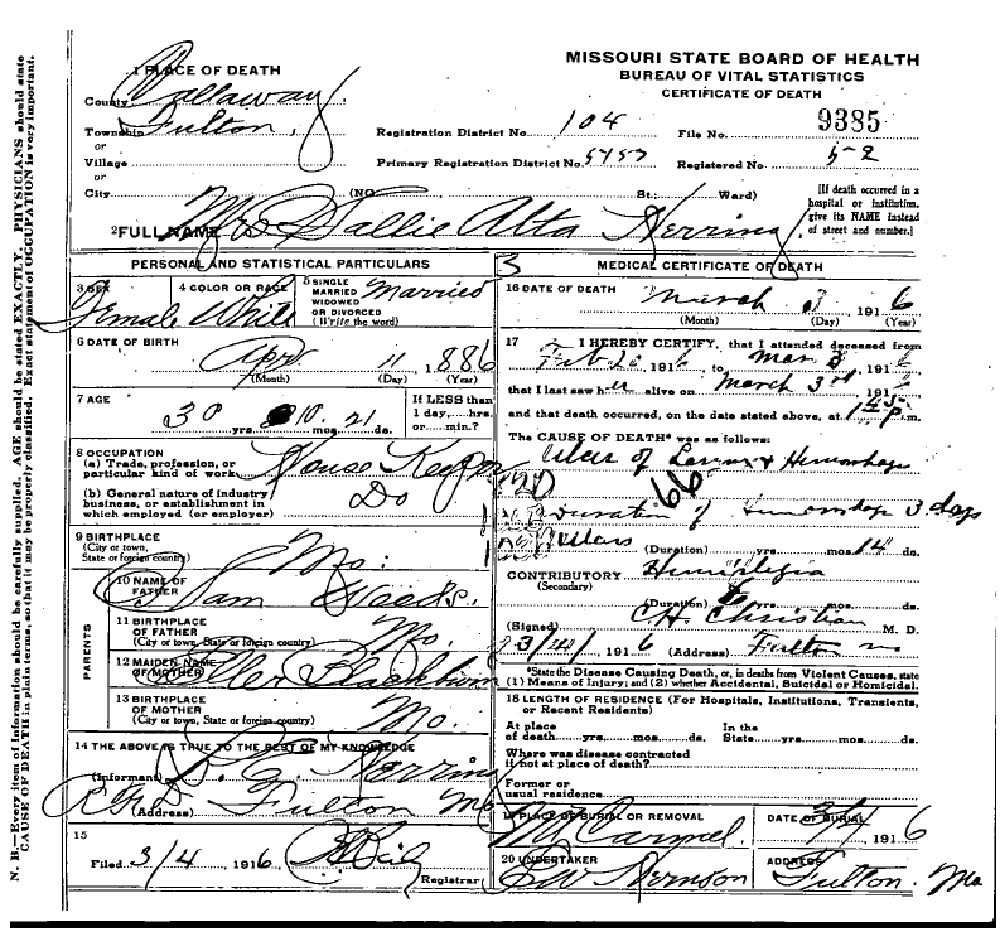 MISSOURI STATE BOARD OF HEALTH
BUREAU OF VITAL STATISTICS
CERTIFICATE OF DEATH
1 PLACE OF DEATH
County Callaway
Township Fulton
or
Village
or
City (NO. St.; Ward)
Registration District No. 104 File No. 9385
Primary Registration District No. 5757 Registered No. 52
[If death occurred in a
hospital or institution,
give its NAME instead
of street and number.]
2 FULL NAME Mrs Sallie Alta Herring
PERSONAL AND STATISTICAL PARTICULARS
3 SEX Female
4 COLOR OR RACE White
5 SINGLE
MARRIED
WIDOWED
OR DIVORCED
(Write the word) Married
6 DATE OF BIRTH
Apr 11 1886
(Month) (Day) (Year)
7 AGE
30 yrs. 10 mos. 21 ds.
If LESS than
1 day, hrs.
or min.?
8 OCCUPATION
(a) Trade, profession, or
particular kind of work
(b) General nature of industry
business, or establishment in
which employed (or employer) Do
9 BIRTHPLACE
(City or town,
State or foreign country) Mo.
PARENTS
10 NAME OF
FATHER Sam Woods.
11 BIRTHPLACE
OF FATHER
(City or town, State or foreign country) Mo.
12 MAIDEN NAME
OF MOTHER Ellen Blackburn
13 BIRTHPLACE
OF MOTHER
(City or town, State or foreign country) Mo.
14 THE ABOVE IS TRUE TO THE BEST OF MY KNOWLEDGE
(Informant) Herring
(Address) RFD Fulton Mo
15
Filed 3/4 1916
Registrar
3 MEDICAL CERTIFICATE OF DEATH
16 DATE OF DEATH
March 3 1916
(Month) (Day) (Year)
17 I HEREBY CERTIFY, that I attended deceased from
Feb 20 1916 to Mar 3 1916
that I last saw her alive on March 3rd 1916
and that death occurred, on the date stated above, at 1 45 p m.
The CAUSE OF DEATH* was as follows:
Ulcer of & Hemorrhage
120
66
Duration of Hemorrhage 3 days
(Duration) yrs. mos. 14 ds.
CONTRIBUTORY Hemiplegia
(Secondary)
(Duration) yrs. mos. ds.
(Signed) C.H. Christian M. D.
3/4/ 1916 (Address) Fulton Mo
*State the Disease Causing Death, or, in deaths from Violent Causes, state
(1) Means of Injury; and (2) whether Accidental, Suicidal or Homicidal.
18 LENGTH OF RESIDENCE (For Hospitals, Institutions, Transients,
or Recent Residents)
At place
of death yrs. mos. ds.
In the
State yrs. mos. ds.
Where was disease contracted
if not at place of death?
Former or
usual residence
19 PLACE OF BURIAL OR REMOVAL
Mt Carmel
DATE OF BURIAL
3/4 1916
20 UNDERTAKER
ADDRESS
Fulton. Mo
N. B.—Every item of information should be carefully supplied. AGE should be stated EXACTLY. PHYSICIANS should state
CAUSE OF DEATH in plain terms, so that it may be properly classified. Exact statement of OCCUPATION is very important.